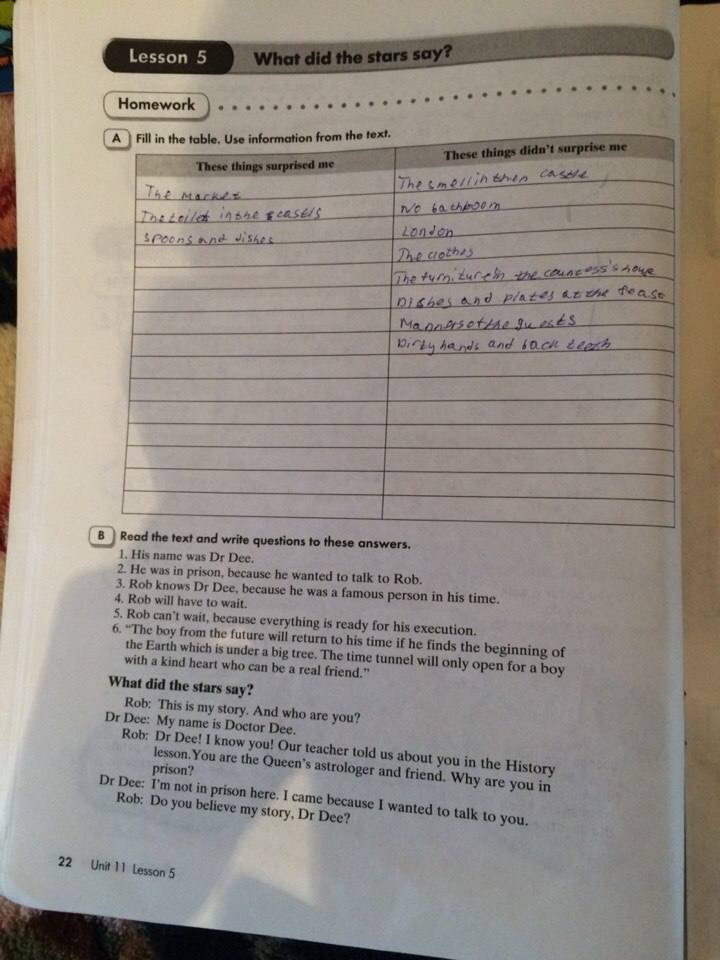 Lesson 5 What did the stars say?
Homework
A Fill in the table. Use information from the text.
These things surprised me These things didn't surprise me
The market The smell in then castle
The toilet in the castls No bathroom
Spoons and dishes London
The clothes
The furniture in the countess's house
Dishes and plates at the feast
Manners of the guests
Dirty hands and back teeth
B Read the text and write questions to these answers.
1. His name was Dr Dee.
2. He was in prison, because he wanted to talk to Rob.
3. Rob knows Dr Dee, because he was a famous person in his time.
4. Rob will have to wait.
5. Rob can't wait, because everything is ready for his execution.
6. “The boy from the future will return to his time if he finds the beginning of
the Earth which is under a big tree. The time tunnel will only open for a boy
with a kind heart who can be a real friend.”
What did the stars say?
Rob: This is my story. And who are you?
Dr Dee: My name is Doctor Dee.
Rob: Dr Dee! I know you! Our teacher told us about you in the History
lesson.You are the Queen's astrologer and friend. Why are you in
prison?
Dr Dee: I'm not in prison here. I came because I wanted to talk to you.
Rob: Do you believe my story, Dr Dee?
22 Unit 11 Lesson 5